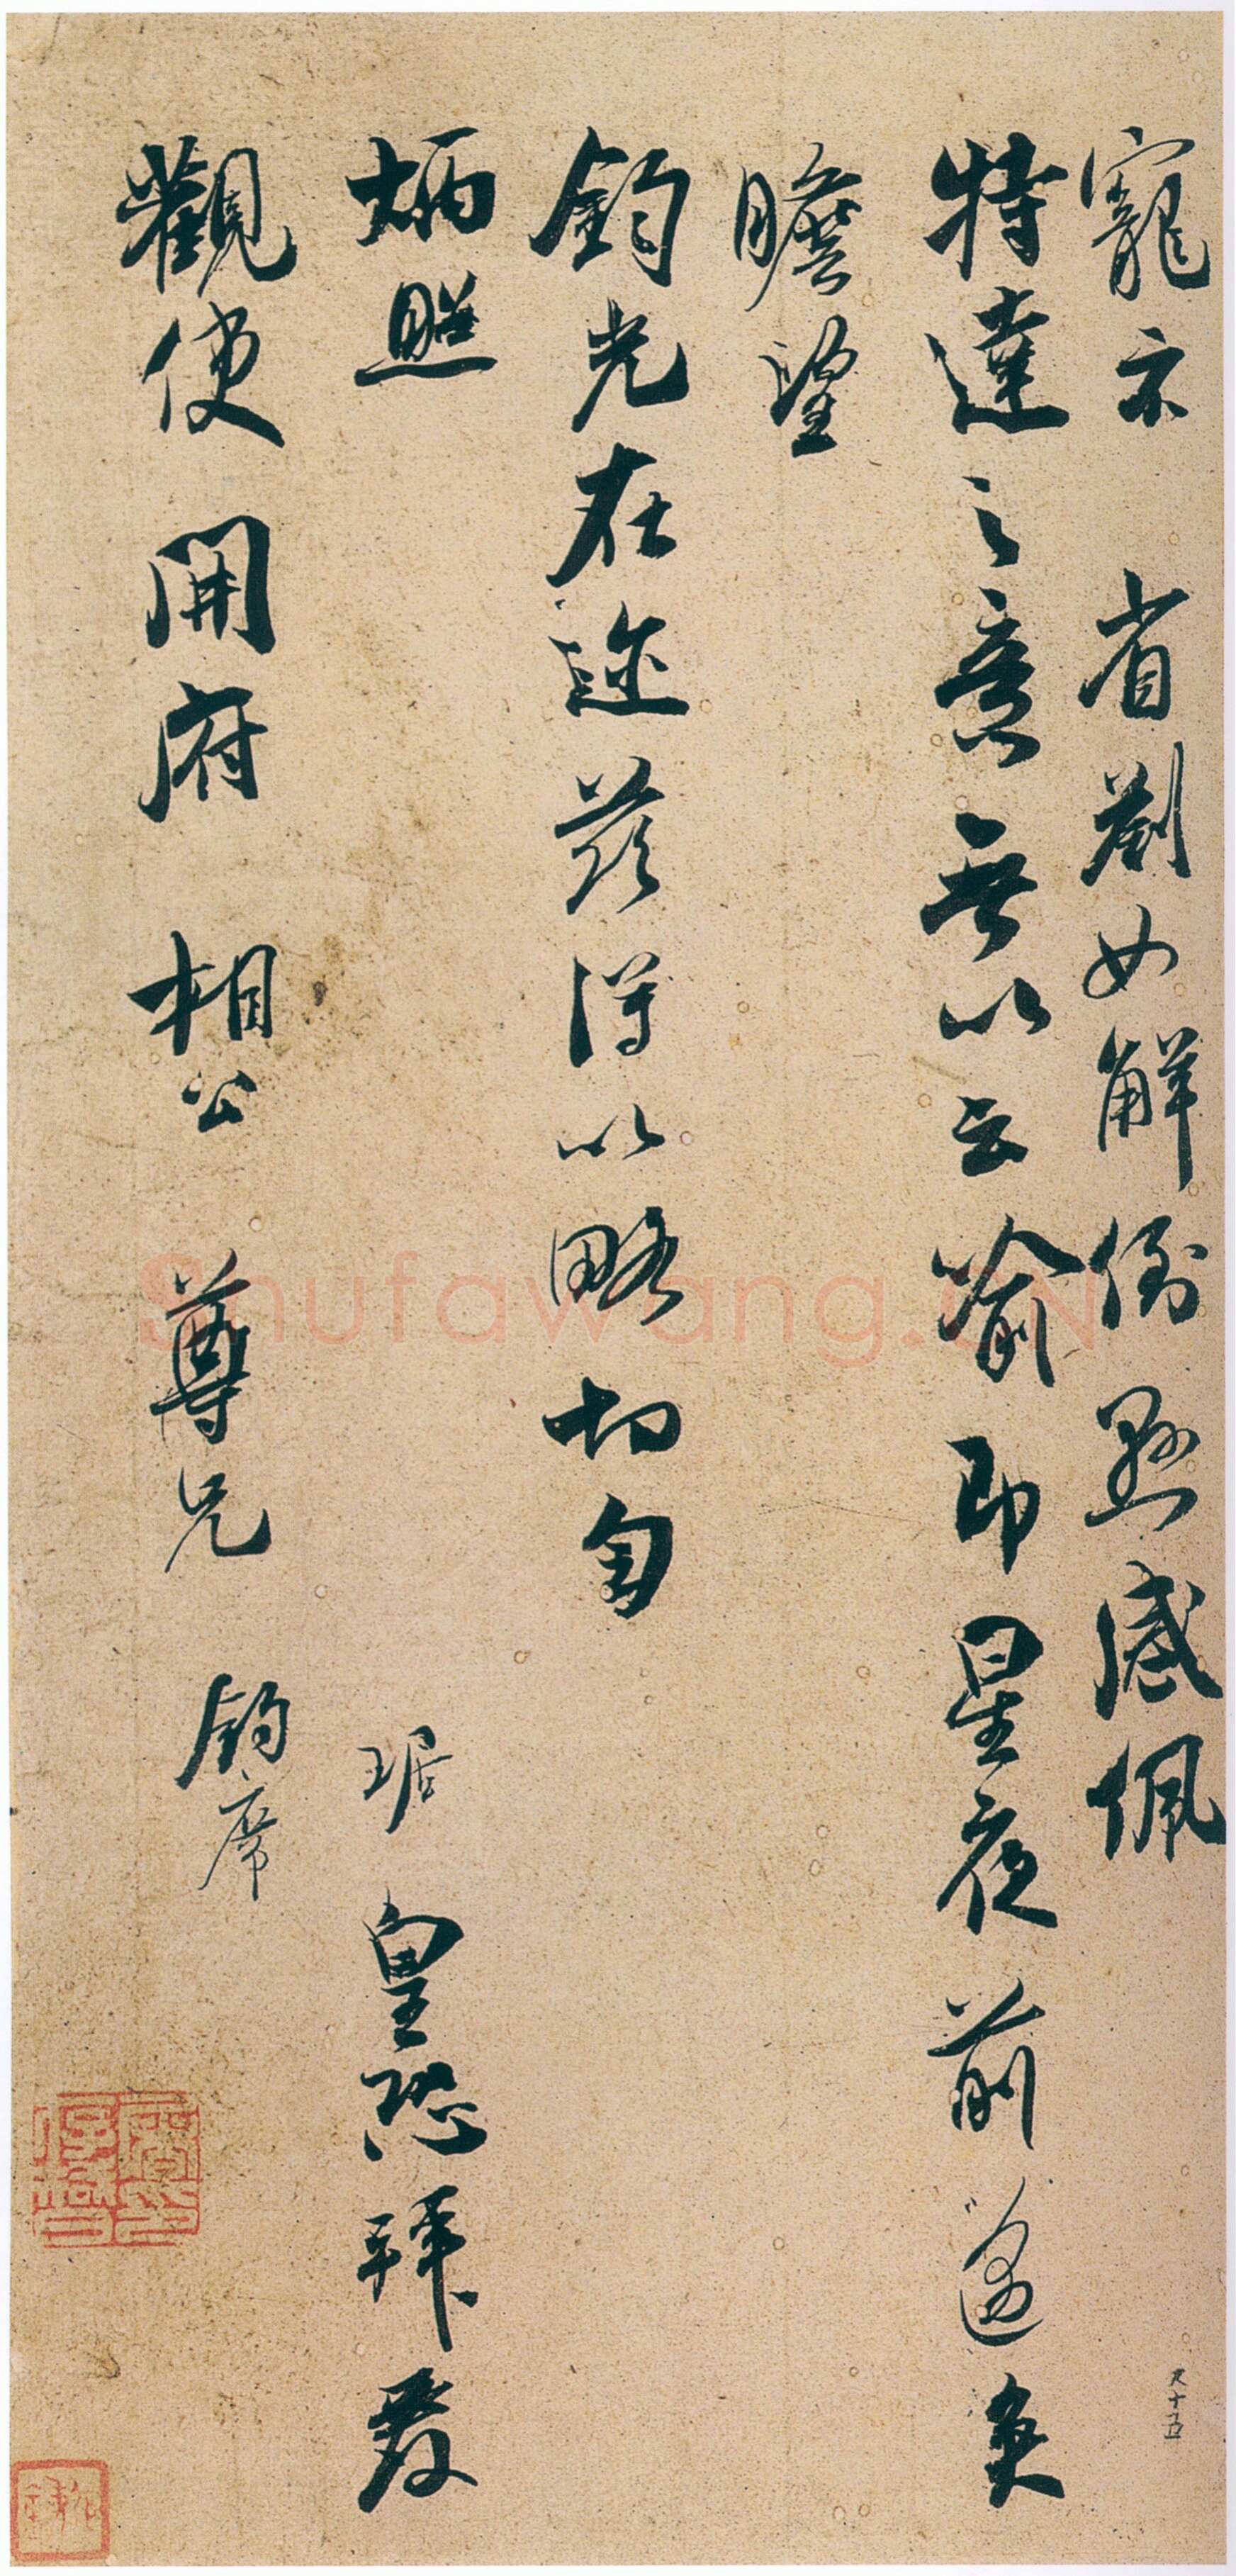 寵示 省劄如解倒懸感佩
特達之意無以云喻即星夜前邁矣
瞻望
鈞光在迩茲得以略切匄
炳照
琚皇恐拜覆
觀使 開府 相公 尊兄 鈞席
尺十五
Shufawang.CN